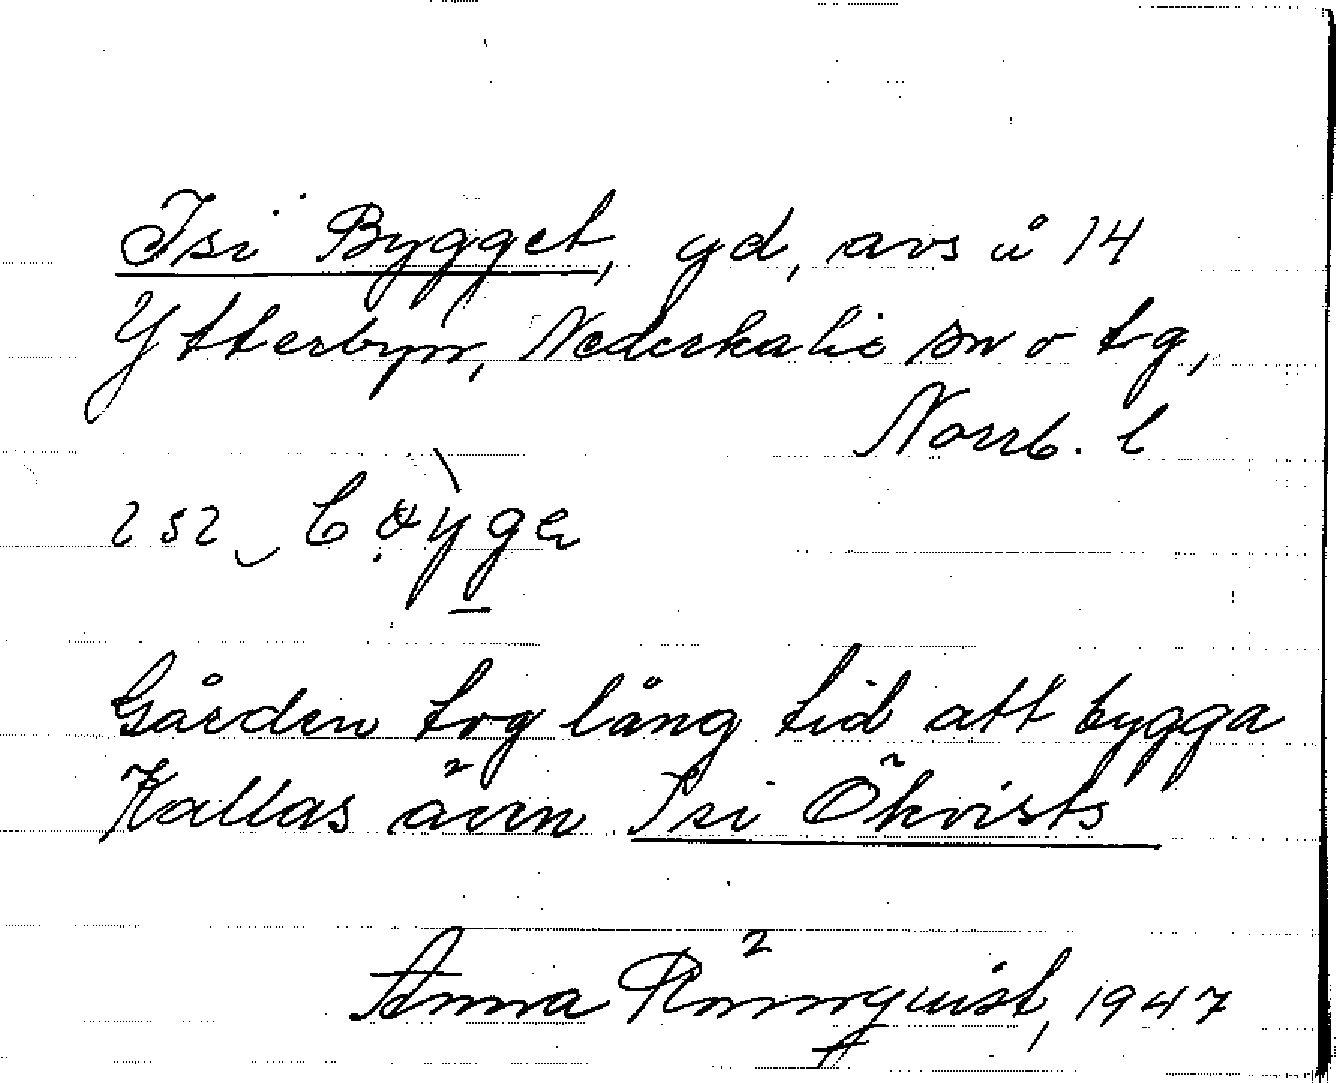 Isi Bygget, gd, avs å 14
Ytterbyn, Nederkalix sn o tg,
Norrb. l
Gården tog lång tid att bygga
Kallas även Isi Ökvists
Anna Rönnquist, 1947